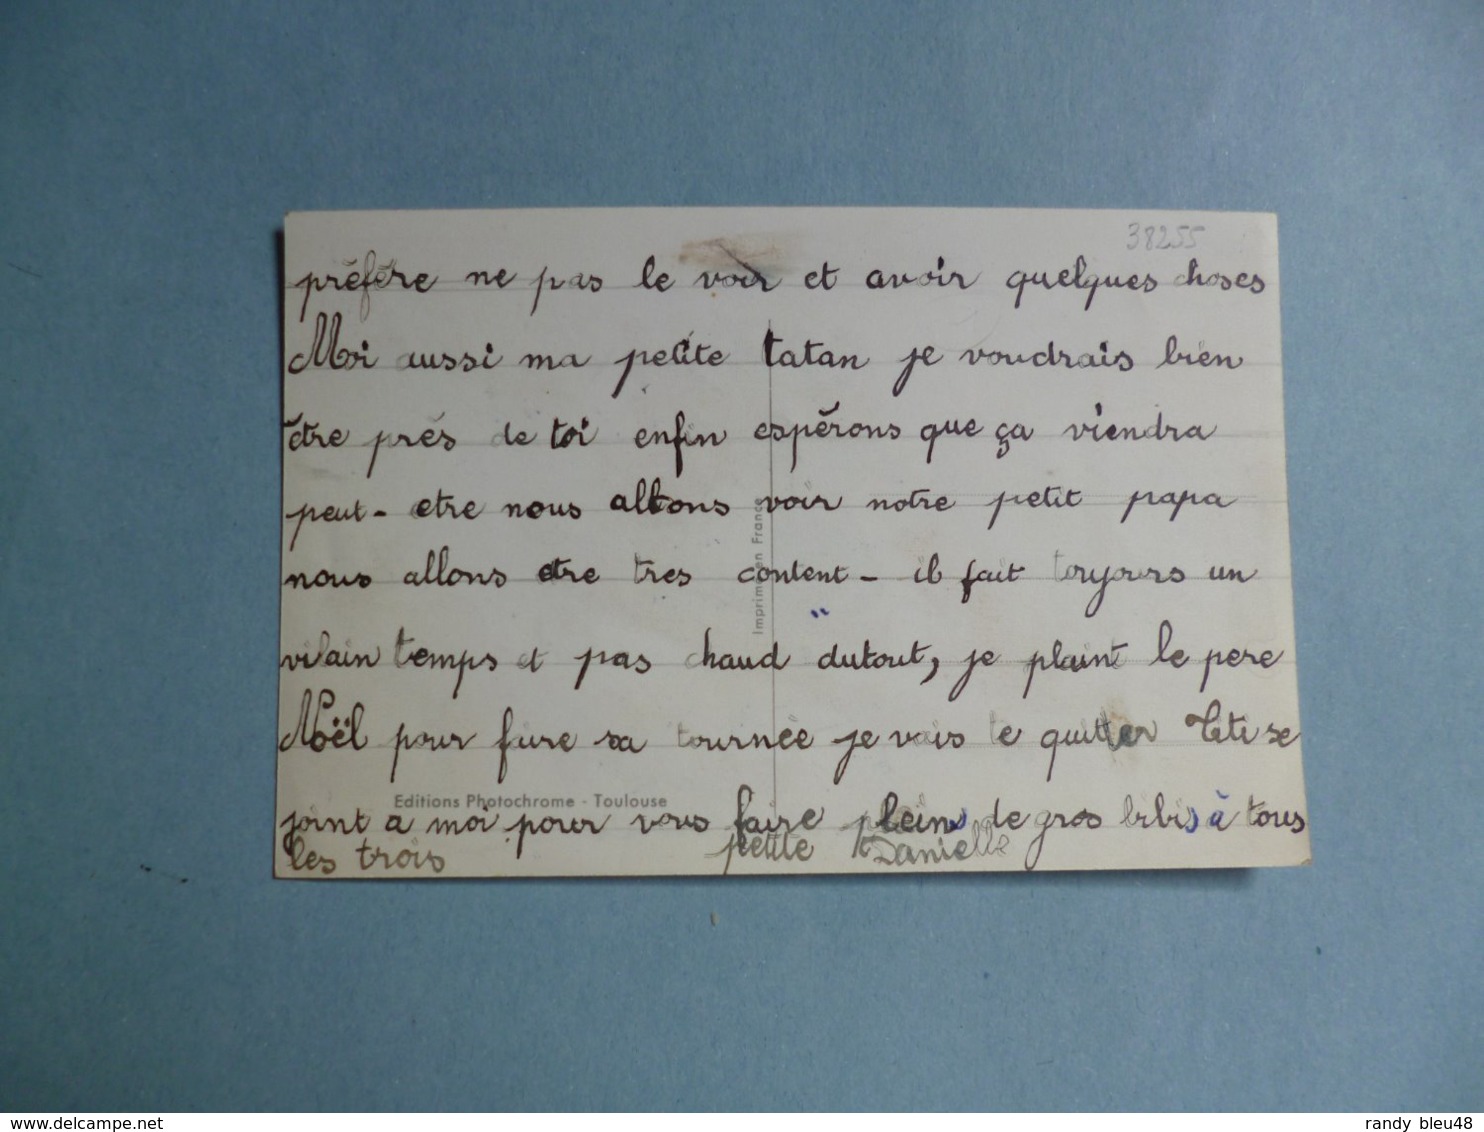 38255
préfére ne pas le voir et avoir quelques choses
Moi aussi ma petite tatan je voudrais bien
être prés de toi enfin espérons que ça viendra
peut-etre nous allons voir notre petit papa
nous allons etre tres content - il fait toujours un
vilain temps et pas chaud dutout, je plaint le pere
Noël pour faire sa tournée je vais te quitter Titi se
joint a moi pour vous faire plein de gros bibis à tous
les trois petite Danielle
Imprimé en France
Editions Photochrome - Toulouse
delcampe.net
randy_bleu48